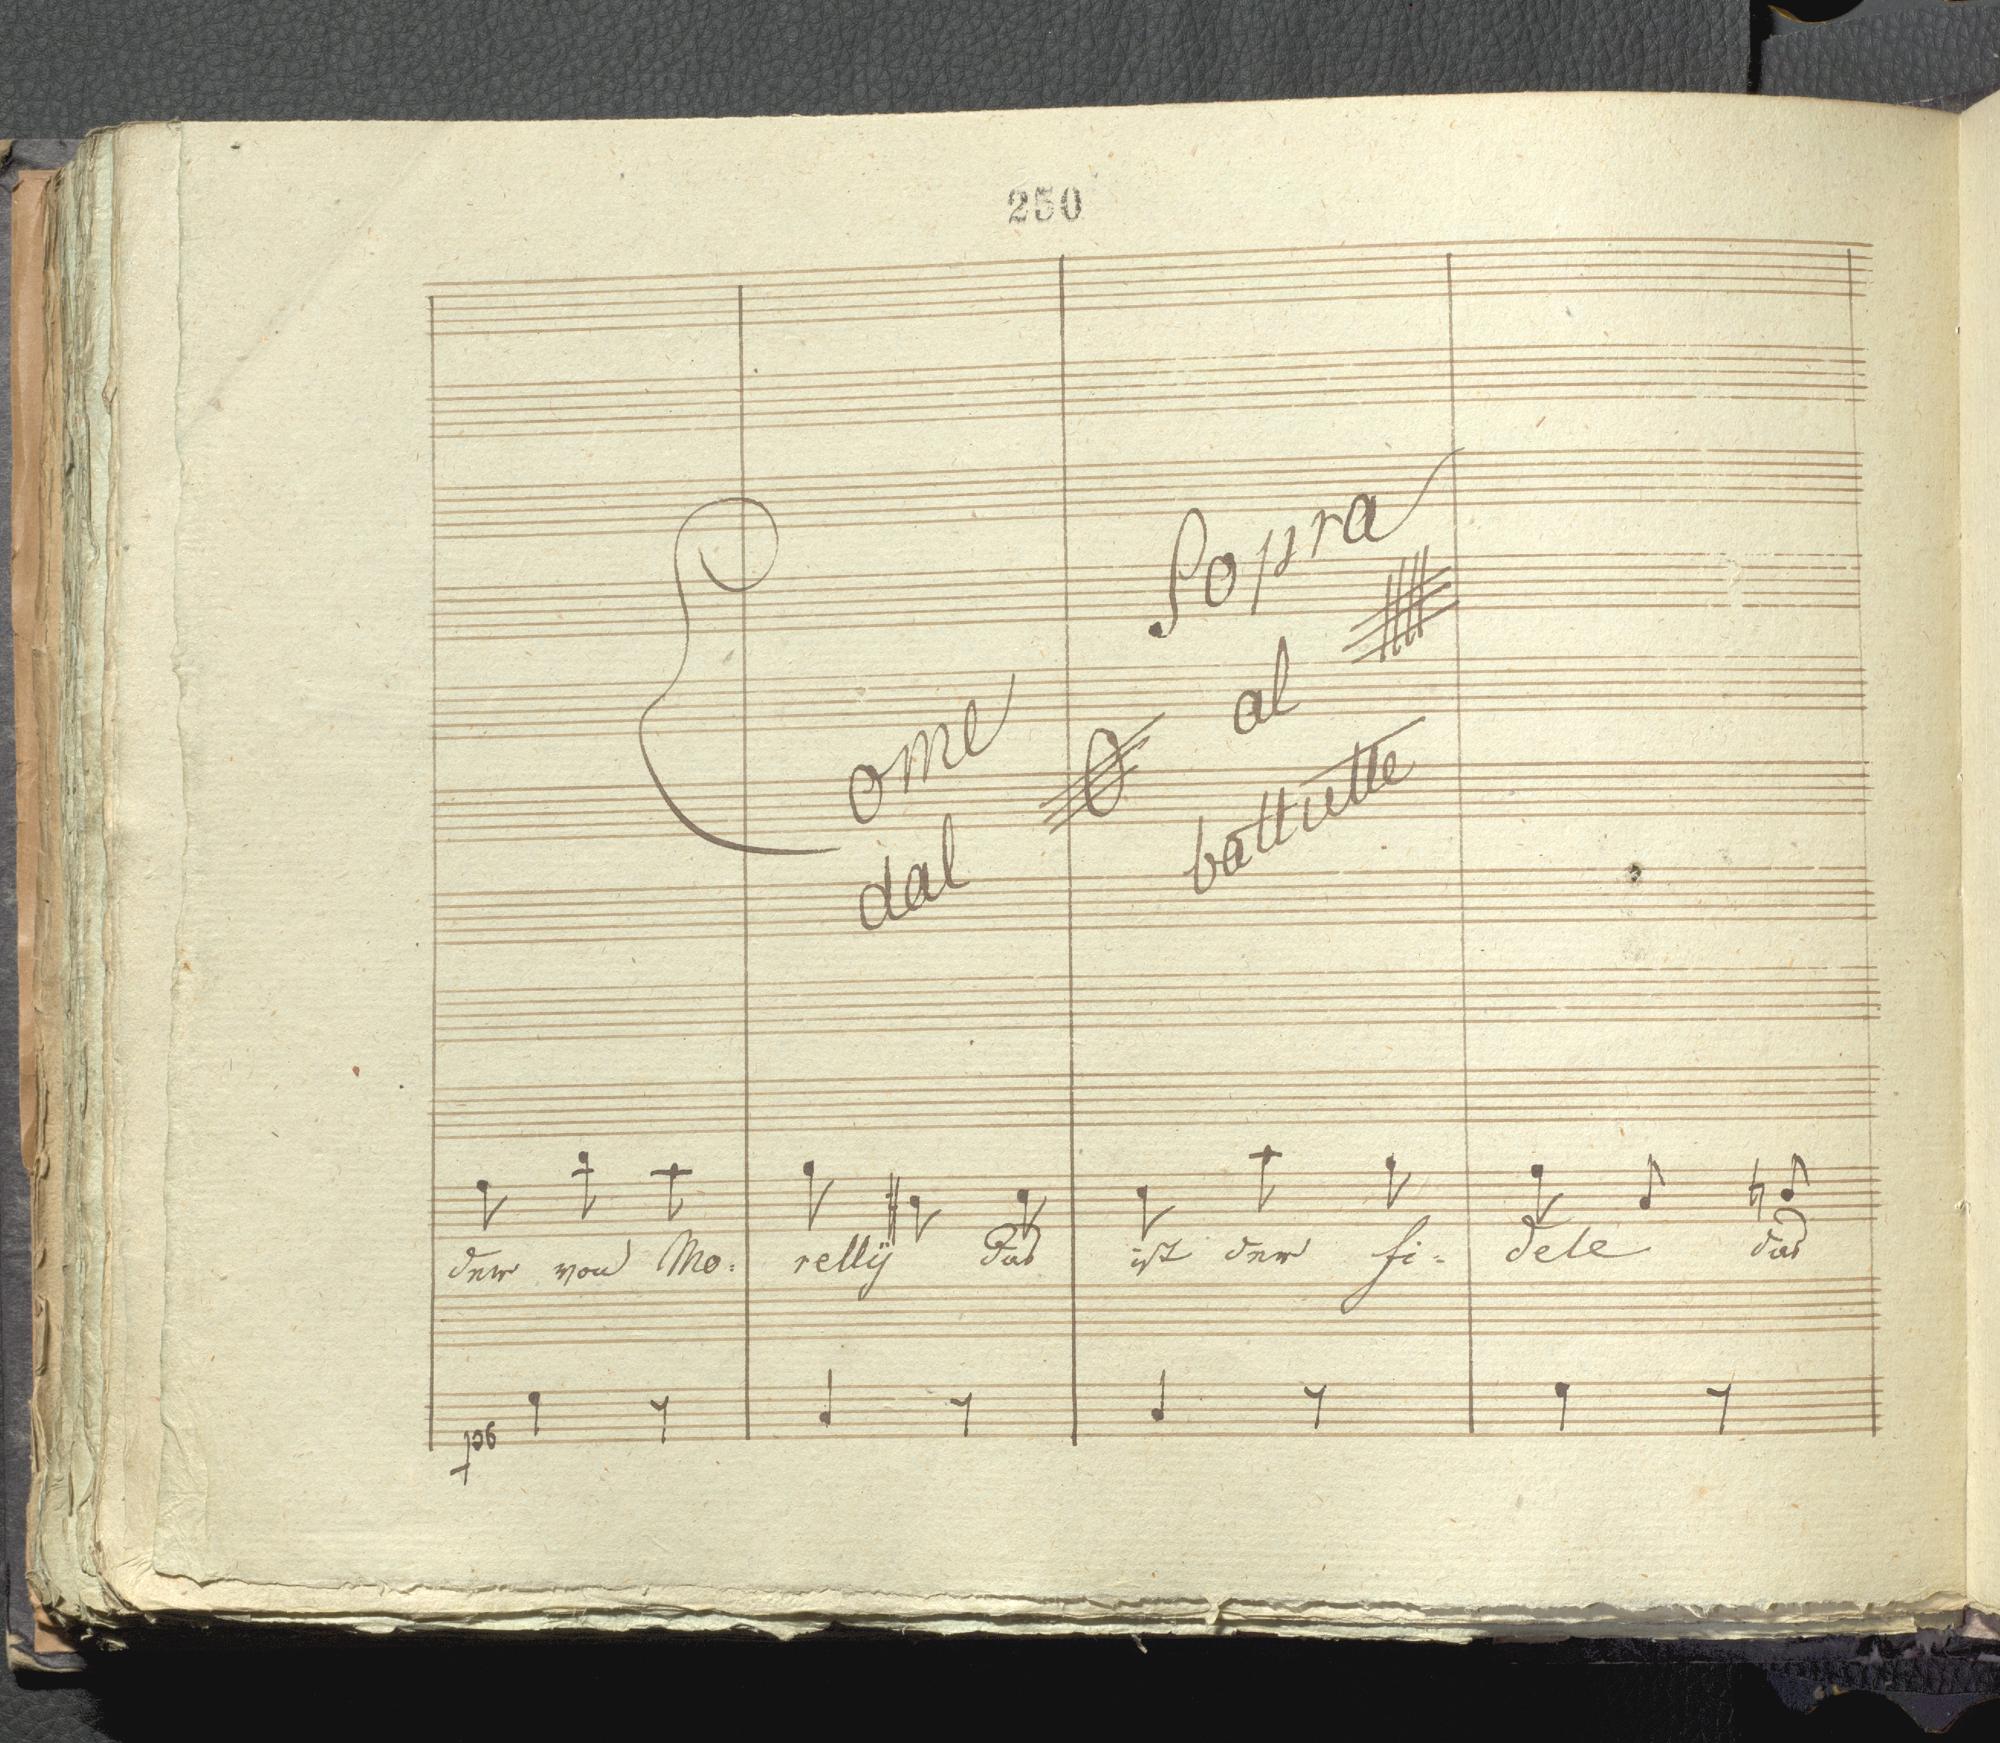 250
Come Sopra
dal al
battutte
der von Mo: relly Das ist der fi: dele das